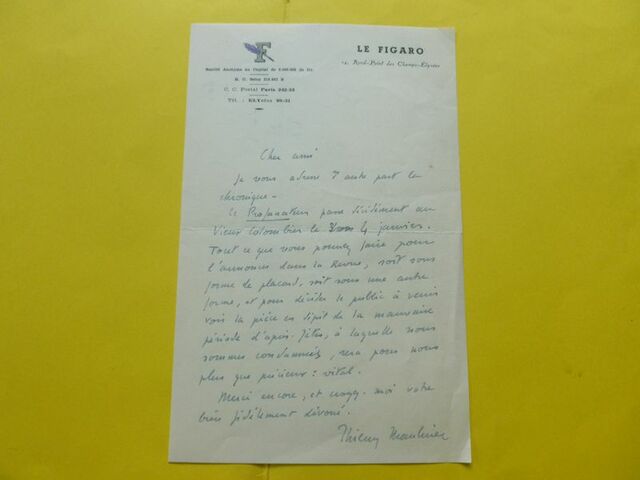 F
LE FIGARO
14, Rond-Point des Champs-Elysées
Société Anonyme au Capital de Fr.
R. C. Seine
C. C. Postal Paris
Tél. : ELYsées 98-31
Cher ami
Je vous adresse d'autre part la
chronique.
Le Profanateur passe décidément au
Vieux Colombier le 4 janvier.
Tout ce que vous pourrez faire pour
l'annoncer dans la Revue, soit sous
forme de placard, soit sous une autre
forme, et pour décider le public à venir
voir la pièce en dépit de la mauvaise
période d'après-fêtes, à laquelle nous
sommes condamnés, sera pour nous
plus que précieux : vital.
Merci encore, et croyez-moi votre
bien fidèlement dévoué.
Thierry Maulnier